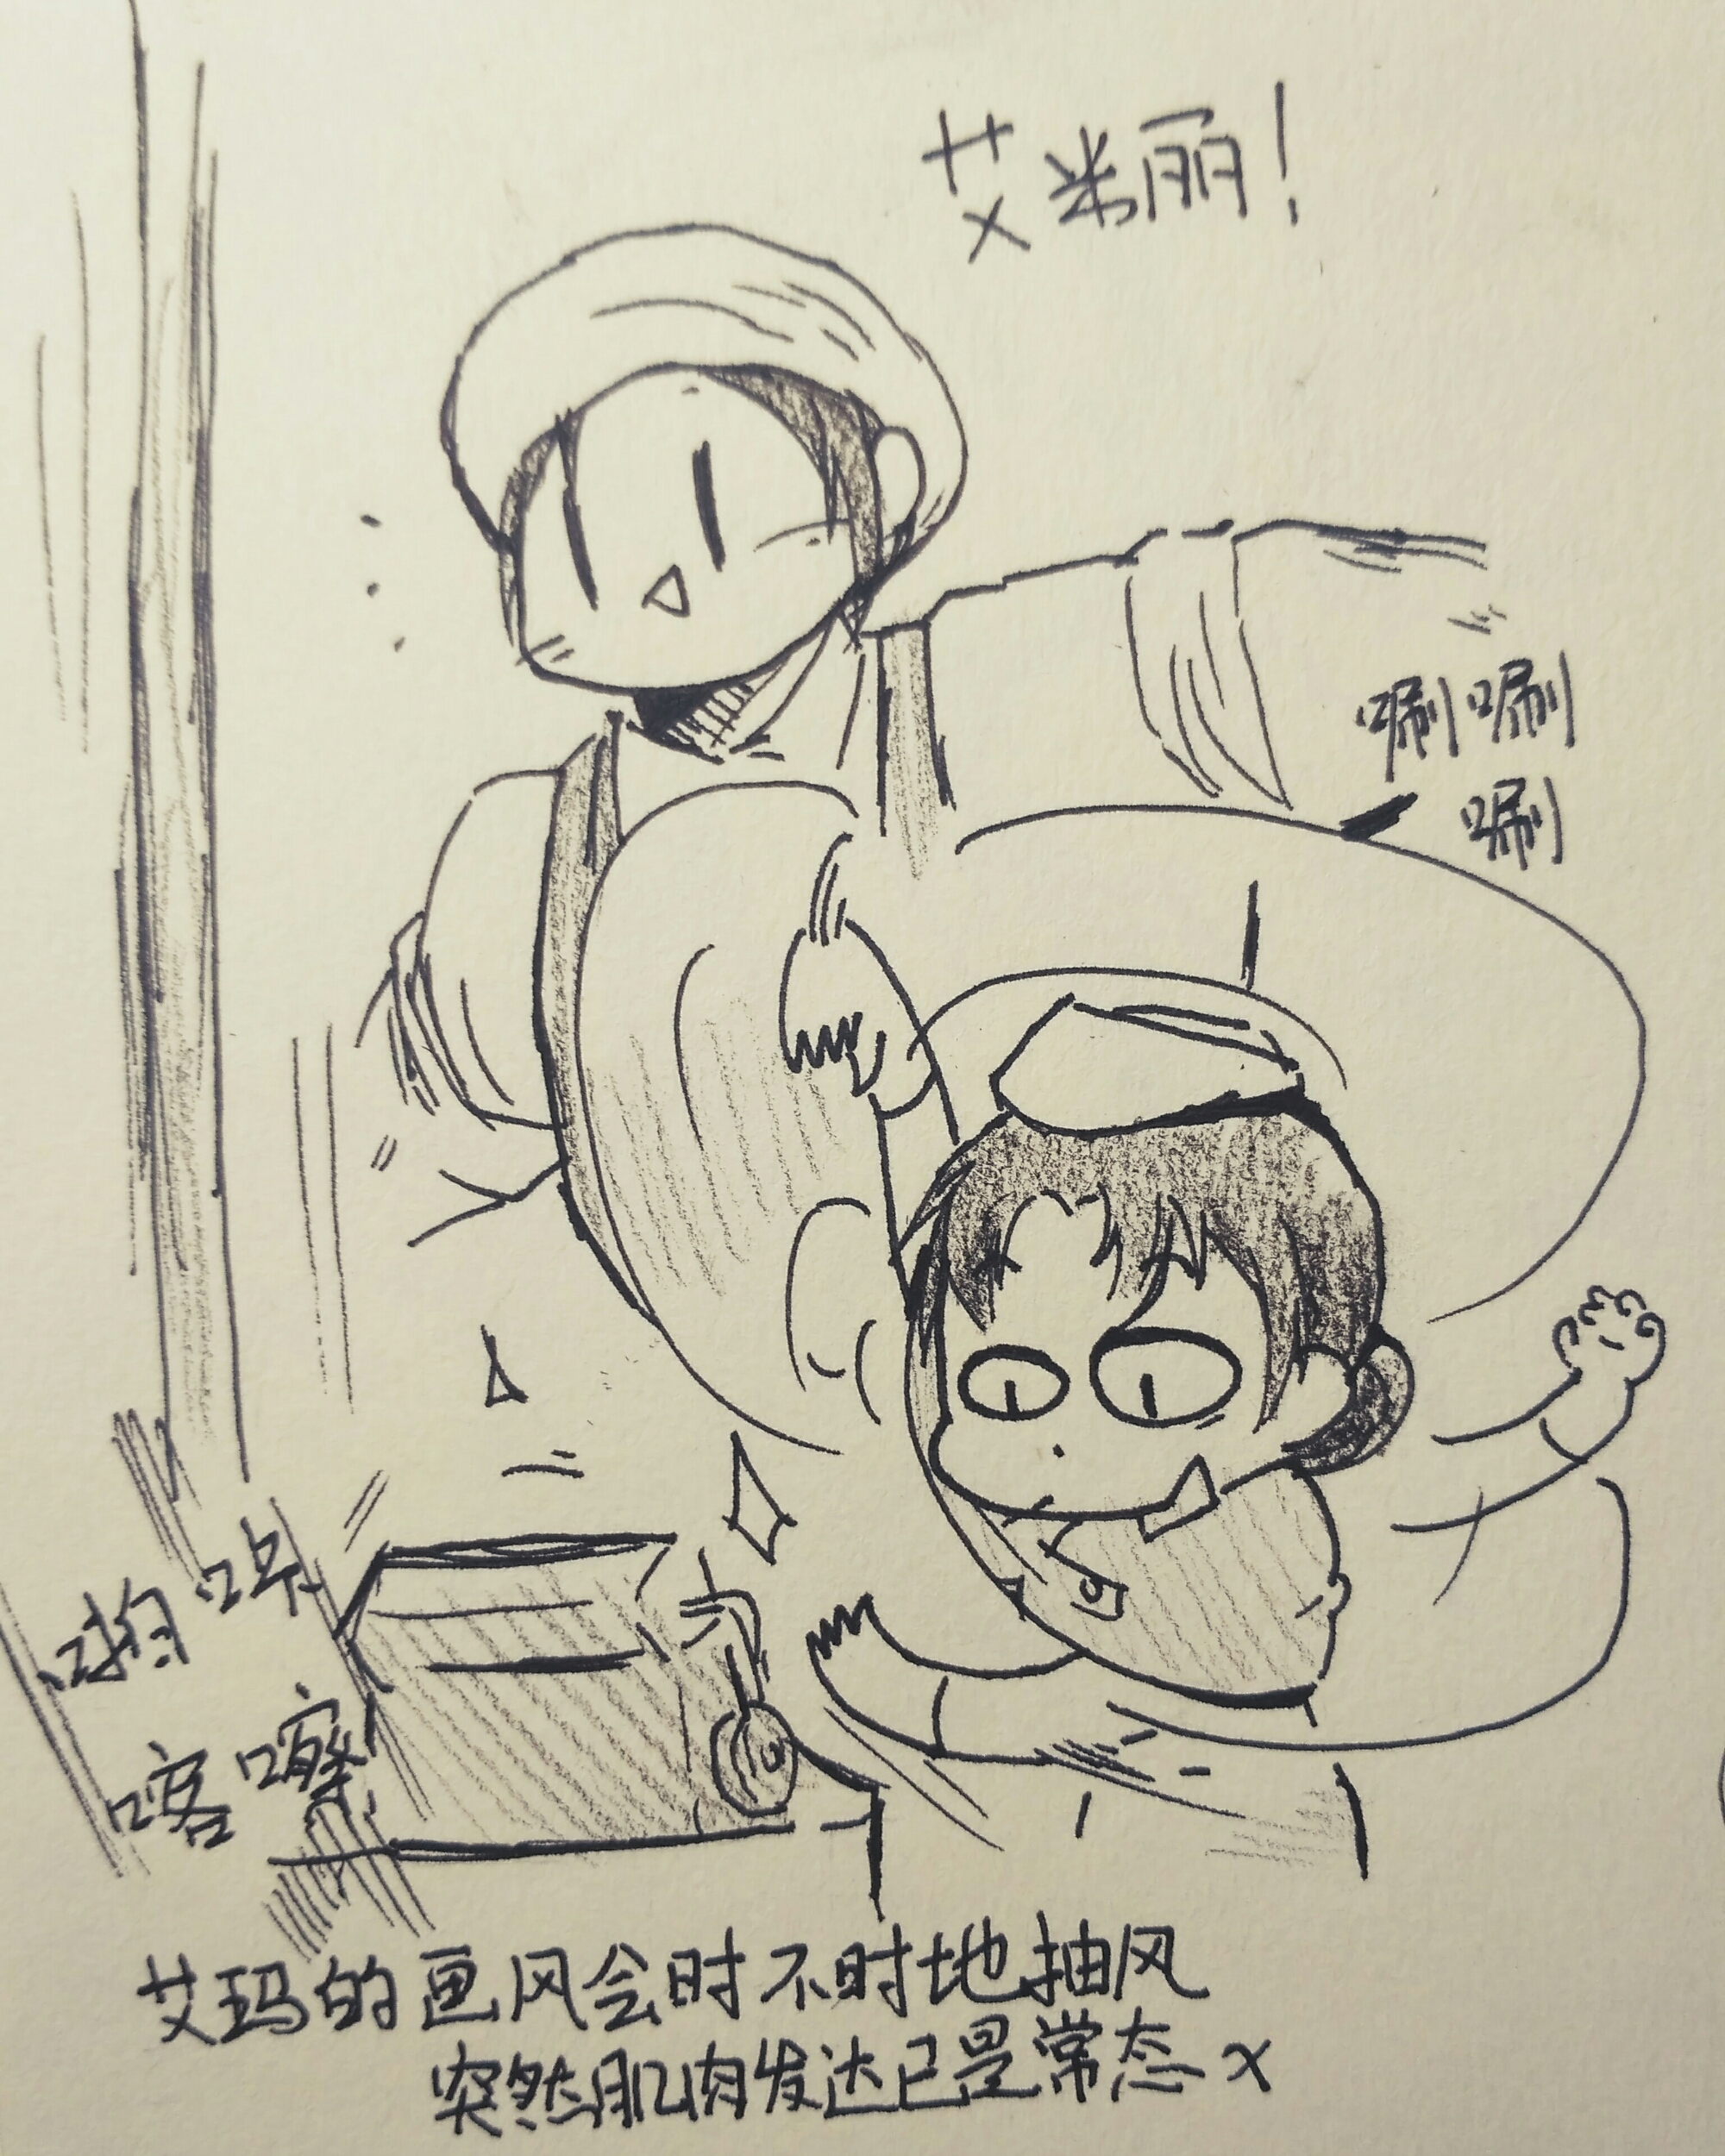 艾米丽!
唰唰
唰
哟呼
喀嚓
艾玛的画风会时不时地抽风
突然肌肉发达已是常态x